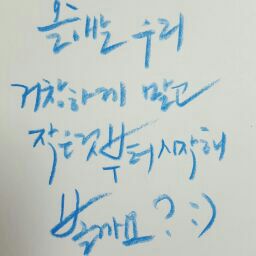 올해는 우리
거창하게 말고
작은것부터시작해
볼까요? :)